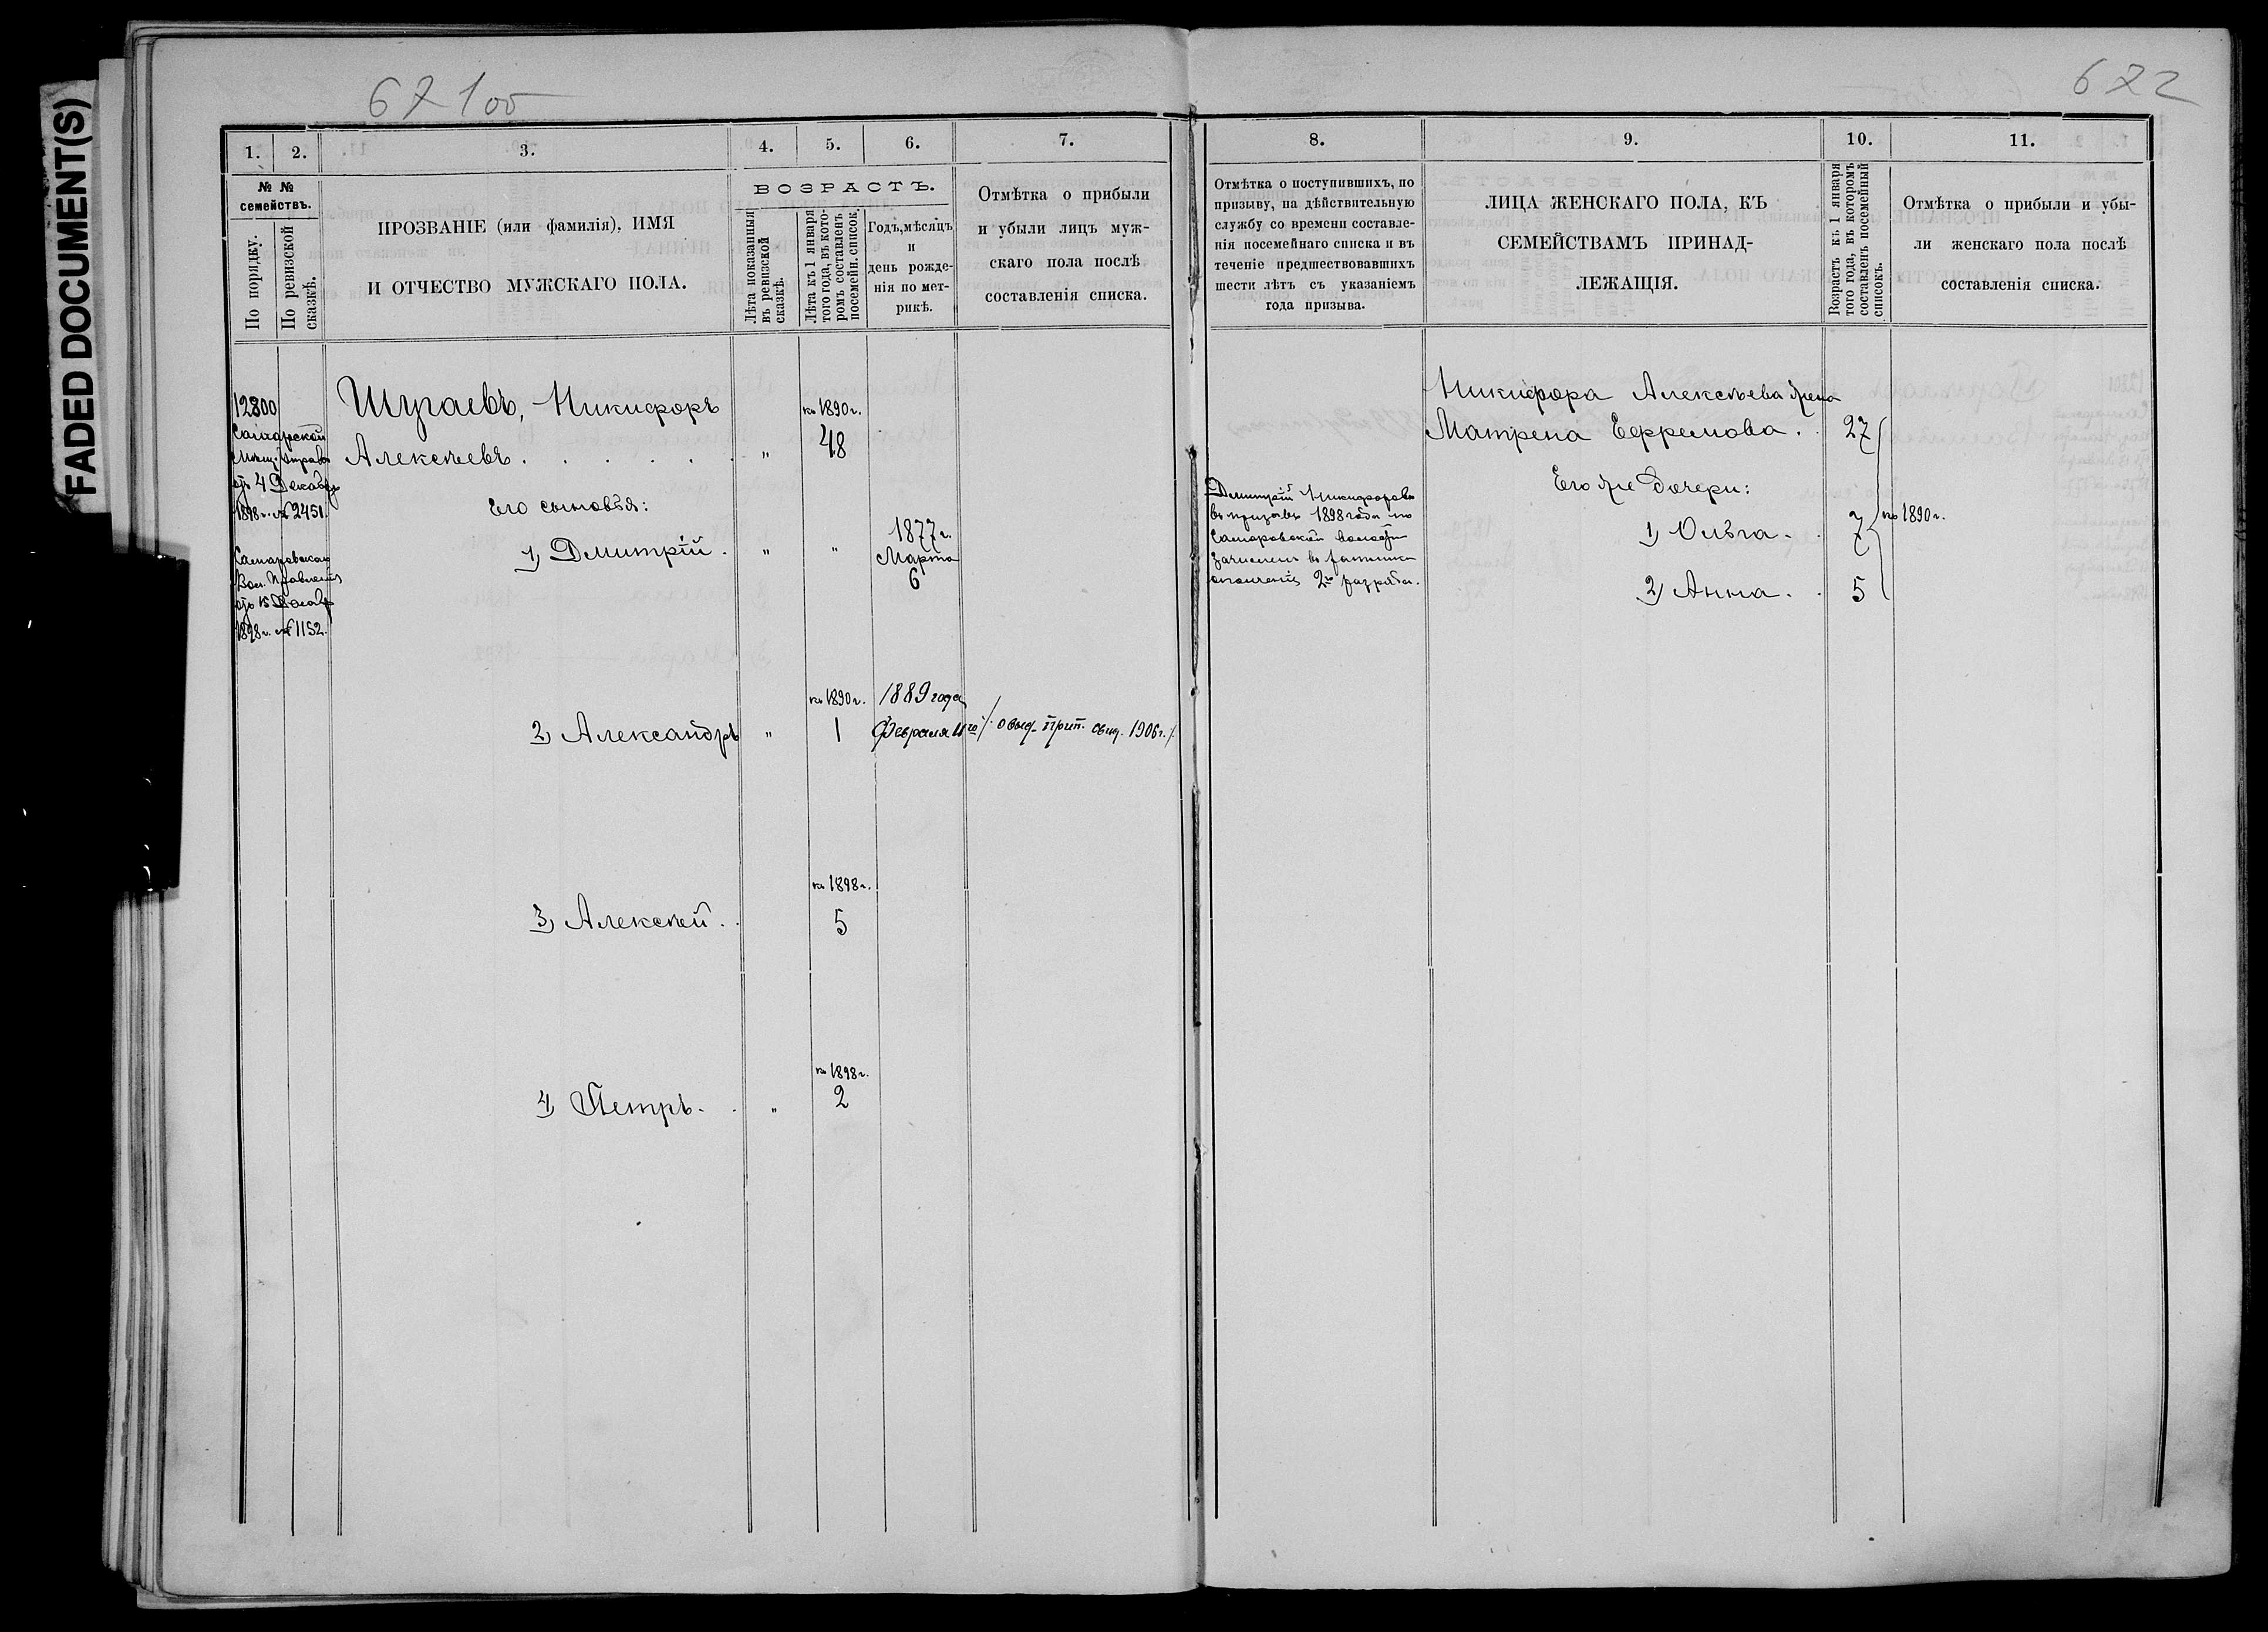 FADED DOCUMENT(S)
67 1 об
1. 2. 3. 4. 5. 6. 7.
№ №
семействъ.
По порядку.
По ревизской
сказкѣ.
ПРОЗВАНІЕ (или фамилія), ИМЯ
И ОТЧЕСТВО МУЖСКАГО ПОЛА.
ВОЗРАСТЪ.
Лѣта показанныя
въ ревизской
сказкѣ.
Лѣта къ 1 января
того года, въ кото-
ромъ составленъ
посемейн. список.
Годъ, мѣсяцъ
и
день рожде-
нія по мет-
рикѣ.
Отмѣтка о прибыли
и убыли лицъ муж-
скаго пола послѣ
составленія списка.
12800
Самарской
Мѣщ. Управы
отъ 4 Декабря
1898 г. № 2451.
Вол. Правленія
отъ 15
1898 г. № 1152.
Шугаевъ, Никифоръ
къ 1890 г.
Алексѣевъ . . . . . . " 48
Его сыновья:
1) Дмитрій . " "
1877 г.
Марта
6
къ 1890 г. 1889 года
2) Александръ " 1 Февраля 11го /. о выд. прип. свид. 1906 г. /.
къ 1898 г.
3) Алексѣй . . 5
къ 1898 г.
4) Петръ . . " 2
672
8. 9. 10. 11.
Отмѣтка о поступившихъ, по
призыву, на дѣйствительную
службу со времени составле-
нія посемейнаго списка и въ
теченіе предшествовавшихъ
шести лѣтъ съ указаніемъ
года призыва.
ЛИЦА ЖЕНСКАГО ПОЛА, КЪ
СЕМЕЙСТВАМЪ ПРИНАД-
ЛЕЖАЩІЯ.
Возрастъ къ 1 января
того года, въ которомъ
составленъ посемейный
списокъ.
Отмѣтка о прибыли и убы-
ли женскаго пола послѣ
составленія списка.
Дмитрій Никифоровъ
въ призывъ 1898 года по
волости
зачисленъ въ ратники
ополченія 2го разряда.
Никифора Алексѣева жена
Матрена Ефремова . . 27
Его же дочери:
1) Ольга . . 7 къ 1890 г.
2) Анна . . 5